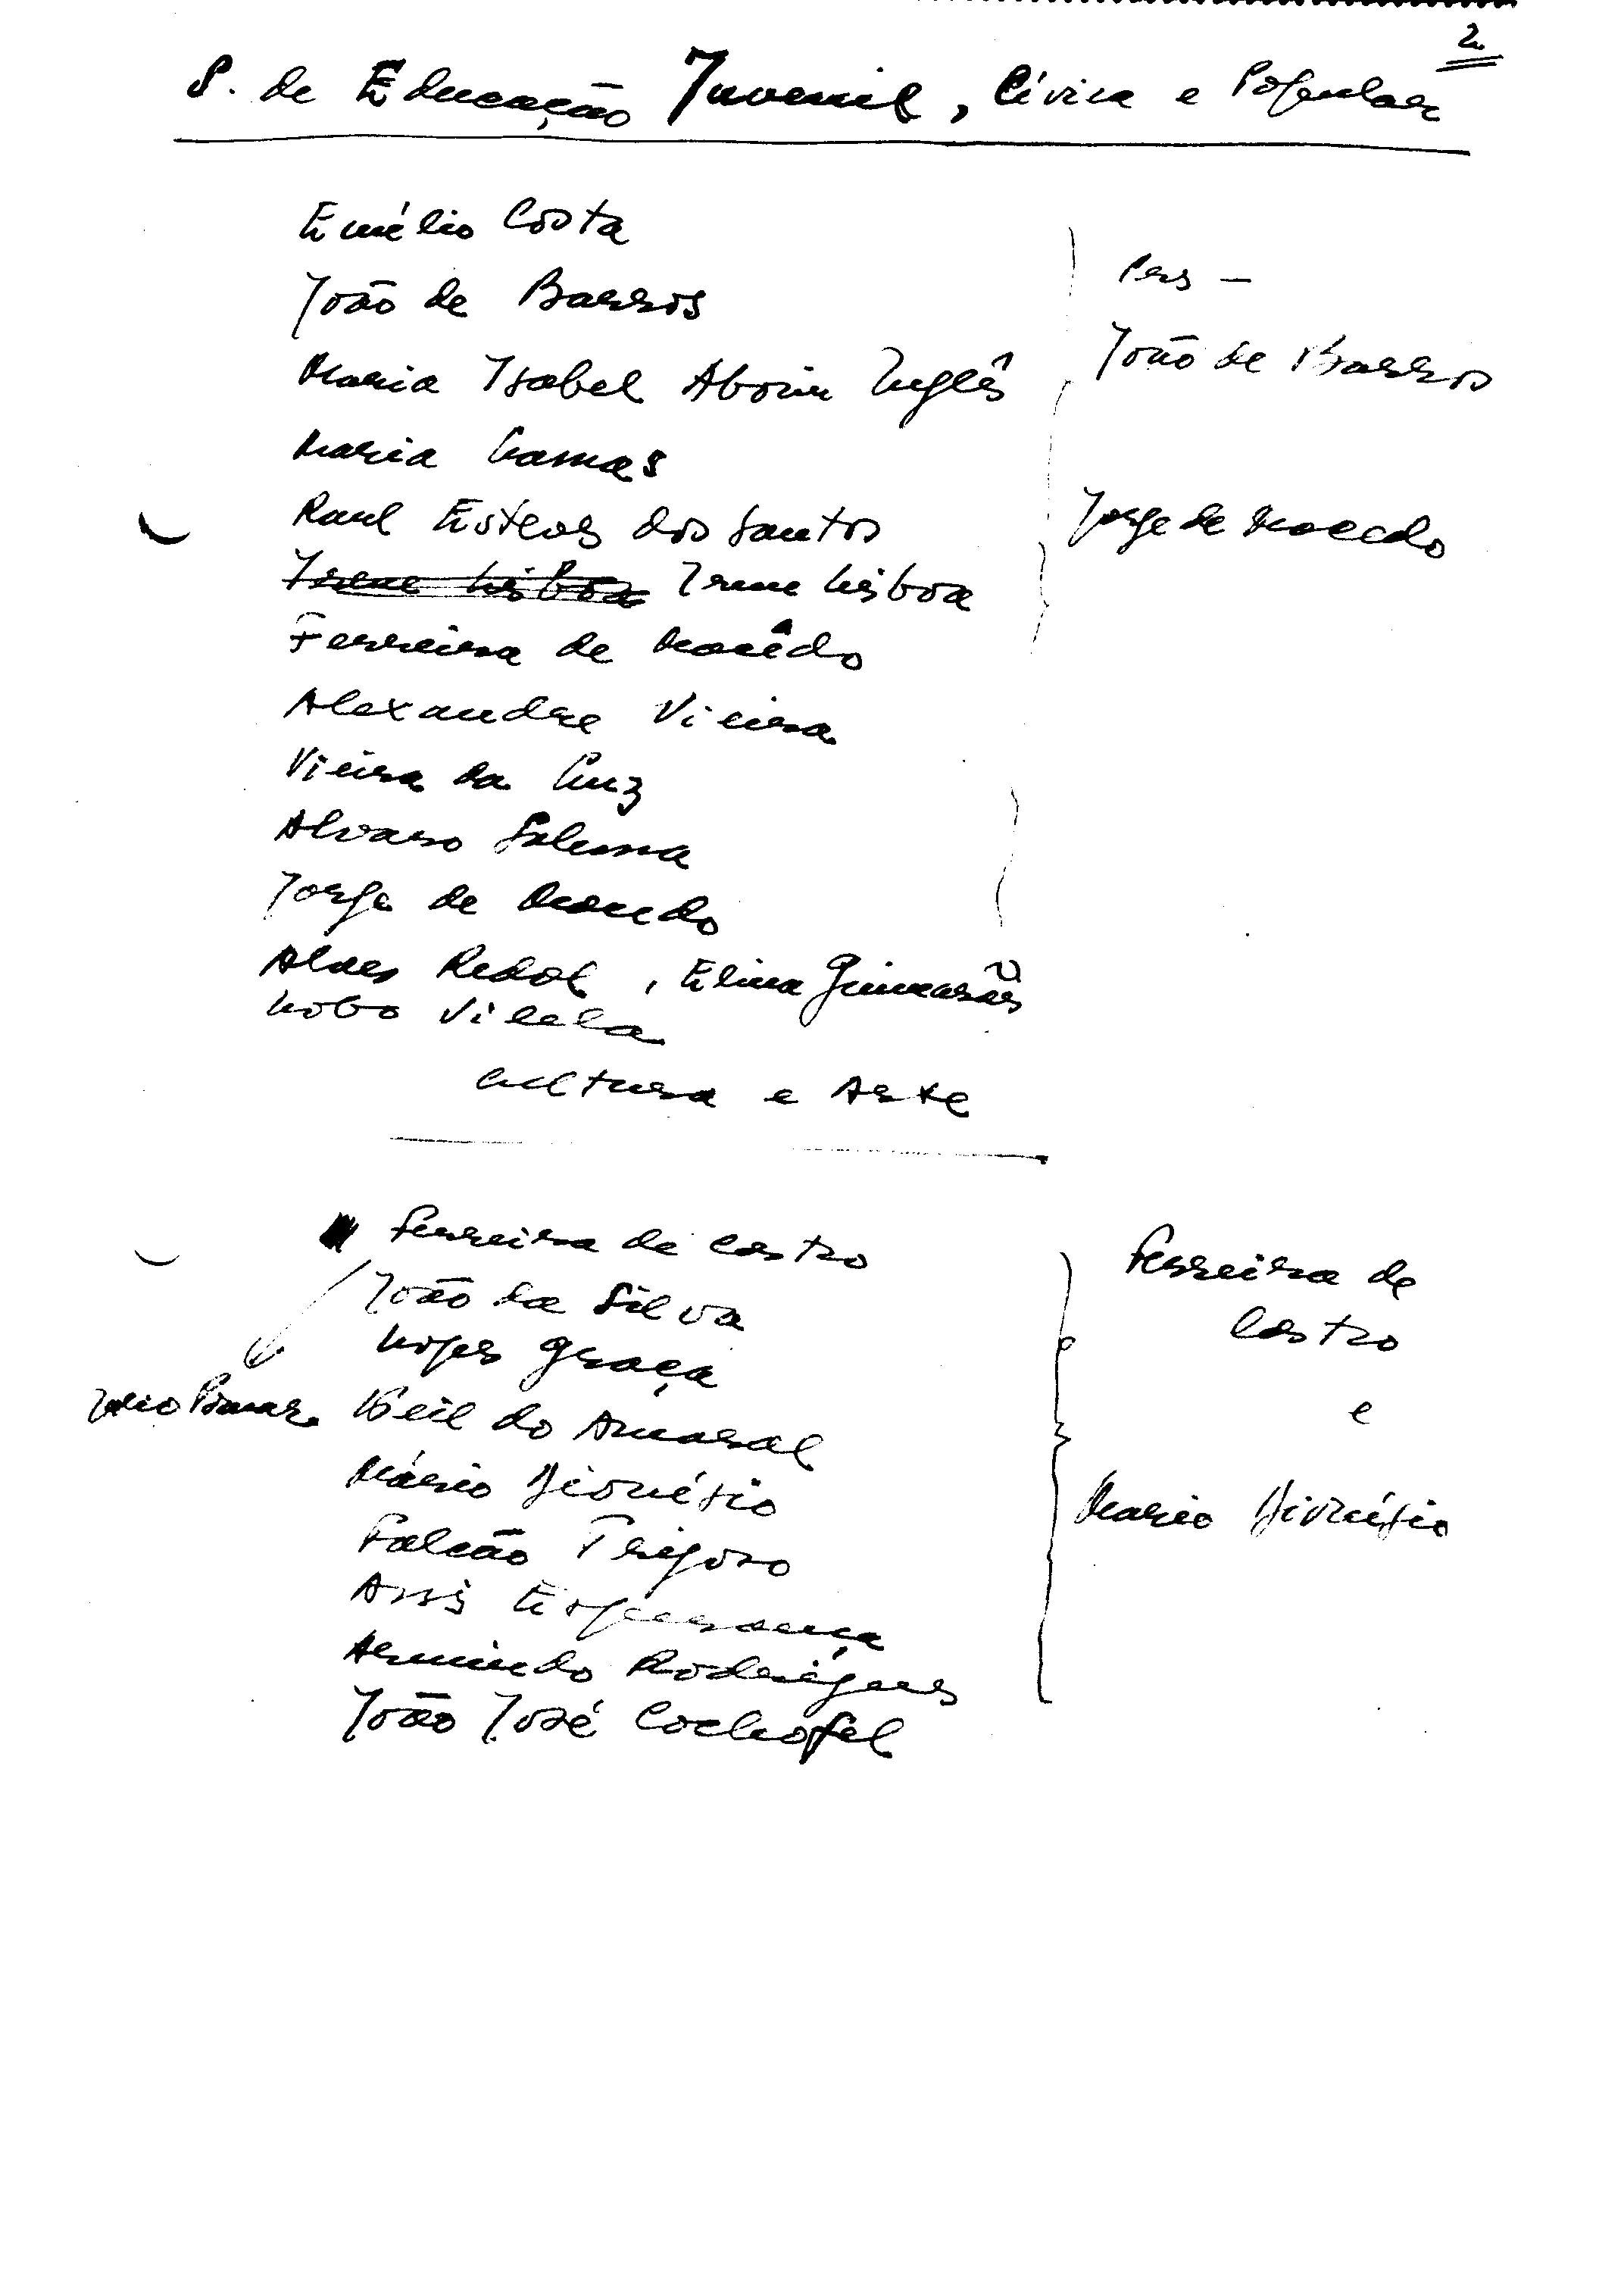 2
S. de Educação Juvenil, Cívica e Popular
Emílio Costa
João de Barros
Maria Isabel Aboim Inglês
Maria Lamas
Raul Esteves dos Santos
Irene Lisboa Irene Lisboa
Ferreira de Macêdo
Alexandre Vieira
Vieira da Luz
Alvaro Salema
Jorge de Macedo
Alves Redol, Elina Guimarães
Lobo Vilela
Pres —
João de Barros
Jorge de Macedo
Cultura e Arte
Ferreira de Castro
João da Silva
Lopes Graça
Júlio Pomar
Keil do Amaral
Mário Dionísio
Falcão Trigoso
Assis Esperança
Armindo Rodrigues
João José Cochofel
Ferreira de
Castro
e
Mario Dionísio